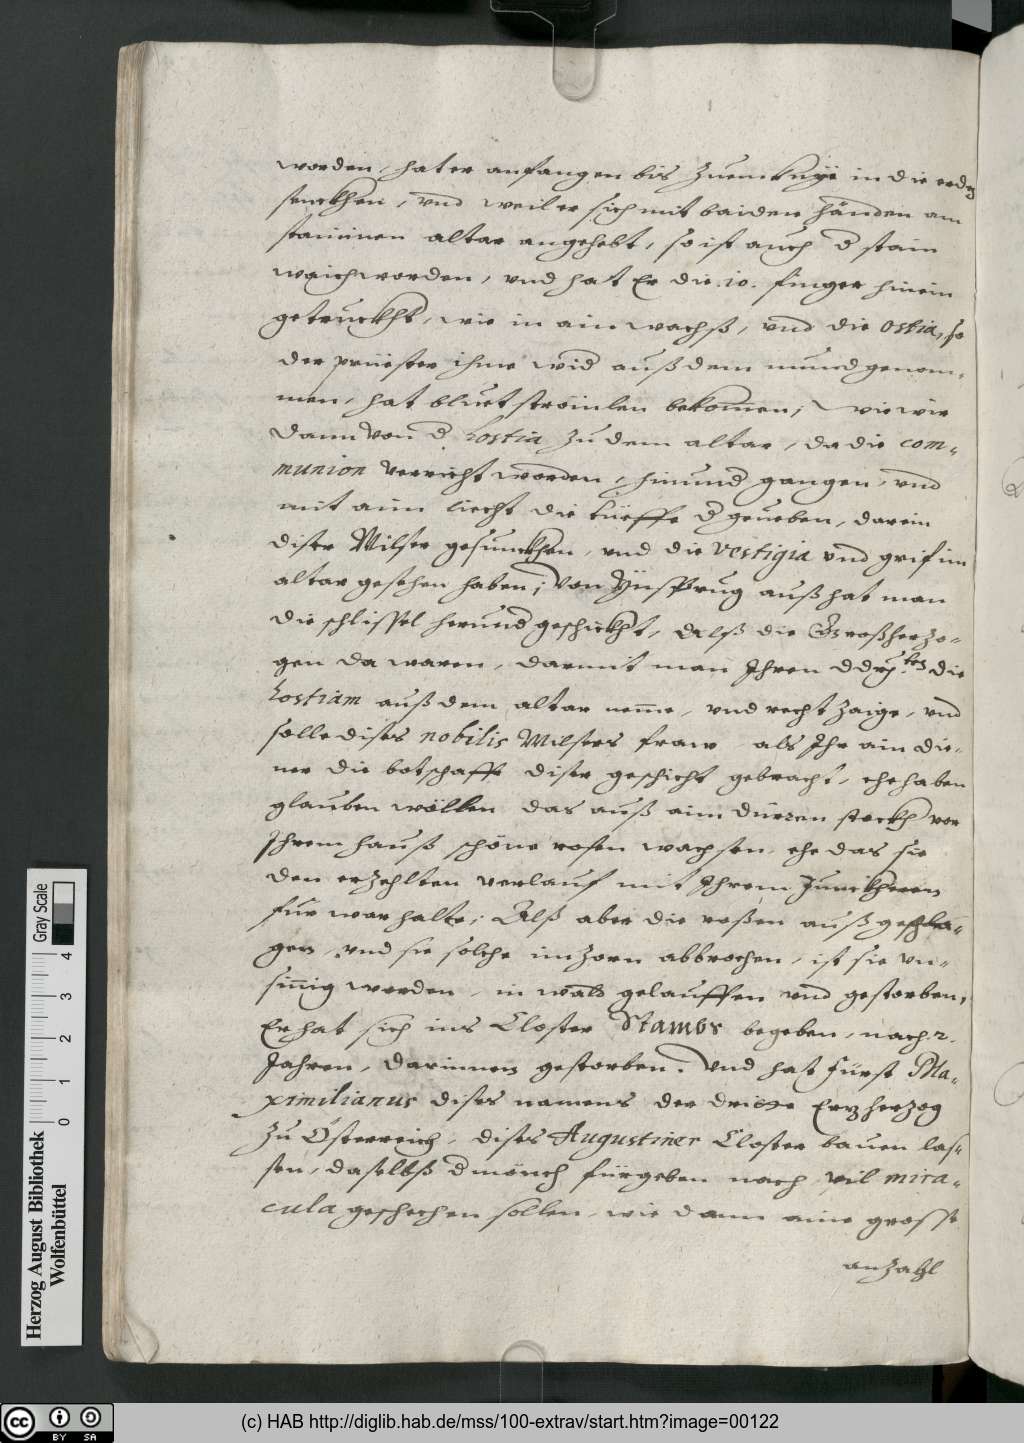 worden, hat er anfangen bis zuem knye in die erdn
senckhen, vnd weil er sich mit baiden händen am
stainnen altar angehebt, so ist auch d stain
waich worden, vnd hat Er die .10. finger hinein
getruckht, wie in ain wachß, vnd die ostia, so
der priester ihme wid auß dem mund genom-
men, hat bluetströmlen bekomen; wie wir
dann von d hostia zu dem altar, da die com-
munion verricht worden, hinund gangen, vnd
mit aim liecht die tüeffe d grueben, darein
diser Milser gesunckhen, vnd die vestigia vnd grif im
altar gesehen haben; von Ynsprug auß hat man
die schlissel herund geschickht, Alß die Großherzo-
gen da waren, darmit man Ihren ddrl. die
hostiam auß dem altar neme, vnd recht zaige, vnd
solle dises nobilis Milsers fraw als Ihr ain die-
ner die botschafft diser geschicht gebracht, ehe haben
glauben wöllen das auß aim dürren stockh vor
Ihrem hauß schöne rosen wachsen, ehe das sie
den erzehlten verlauf mit Ihrem Junckherren
fur war halte; Alß aber die roßen auß geschla-
gen, vnd sie solche im zorn abbrochen, ist sie vn-
sinnig worden, in wald gelauffen vnd gestorben,
Er hat sich ins Closter Stambs begeben, nach .2.
Jahren, darinnen gestorben. Vnd hat Fürst Ma-
ximilianus dises namens der dritte Erzherzog
zu Österreich, dises Augustiner Closter bauen las-
sen, daselbß d mönch fürgeben nach vil mira-
cula geschechen sollen, wie dann aine grosse
anzahl
Herzog August Bibliothek
Wolfenbüttel
0 1 2 3 4
Gray Scale
cc BY SA
(c) HAB http://diglib.hab.de/mss/100-extrav/start.htm?image=00122